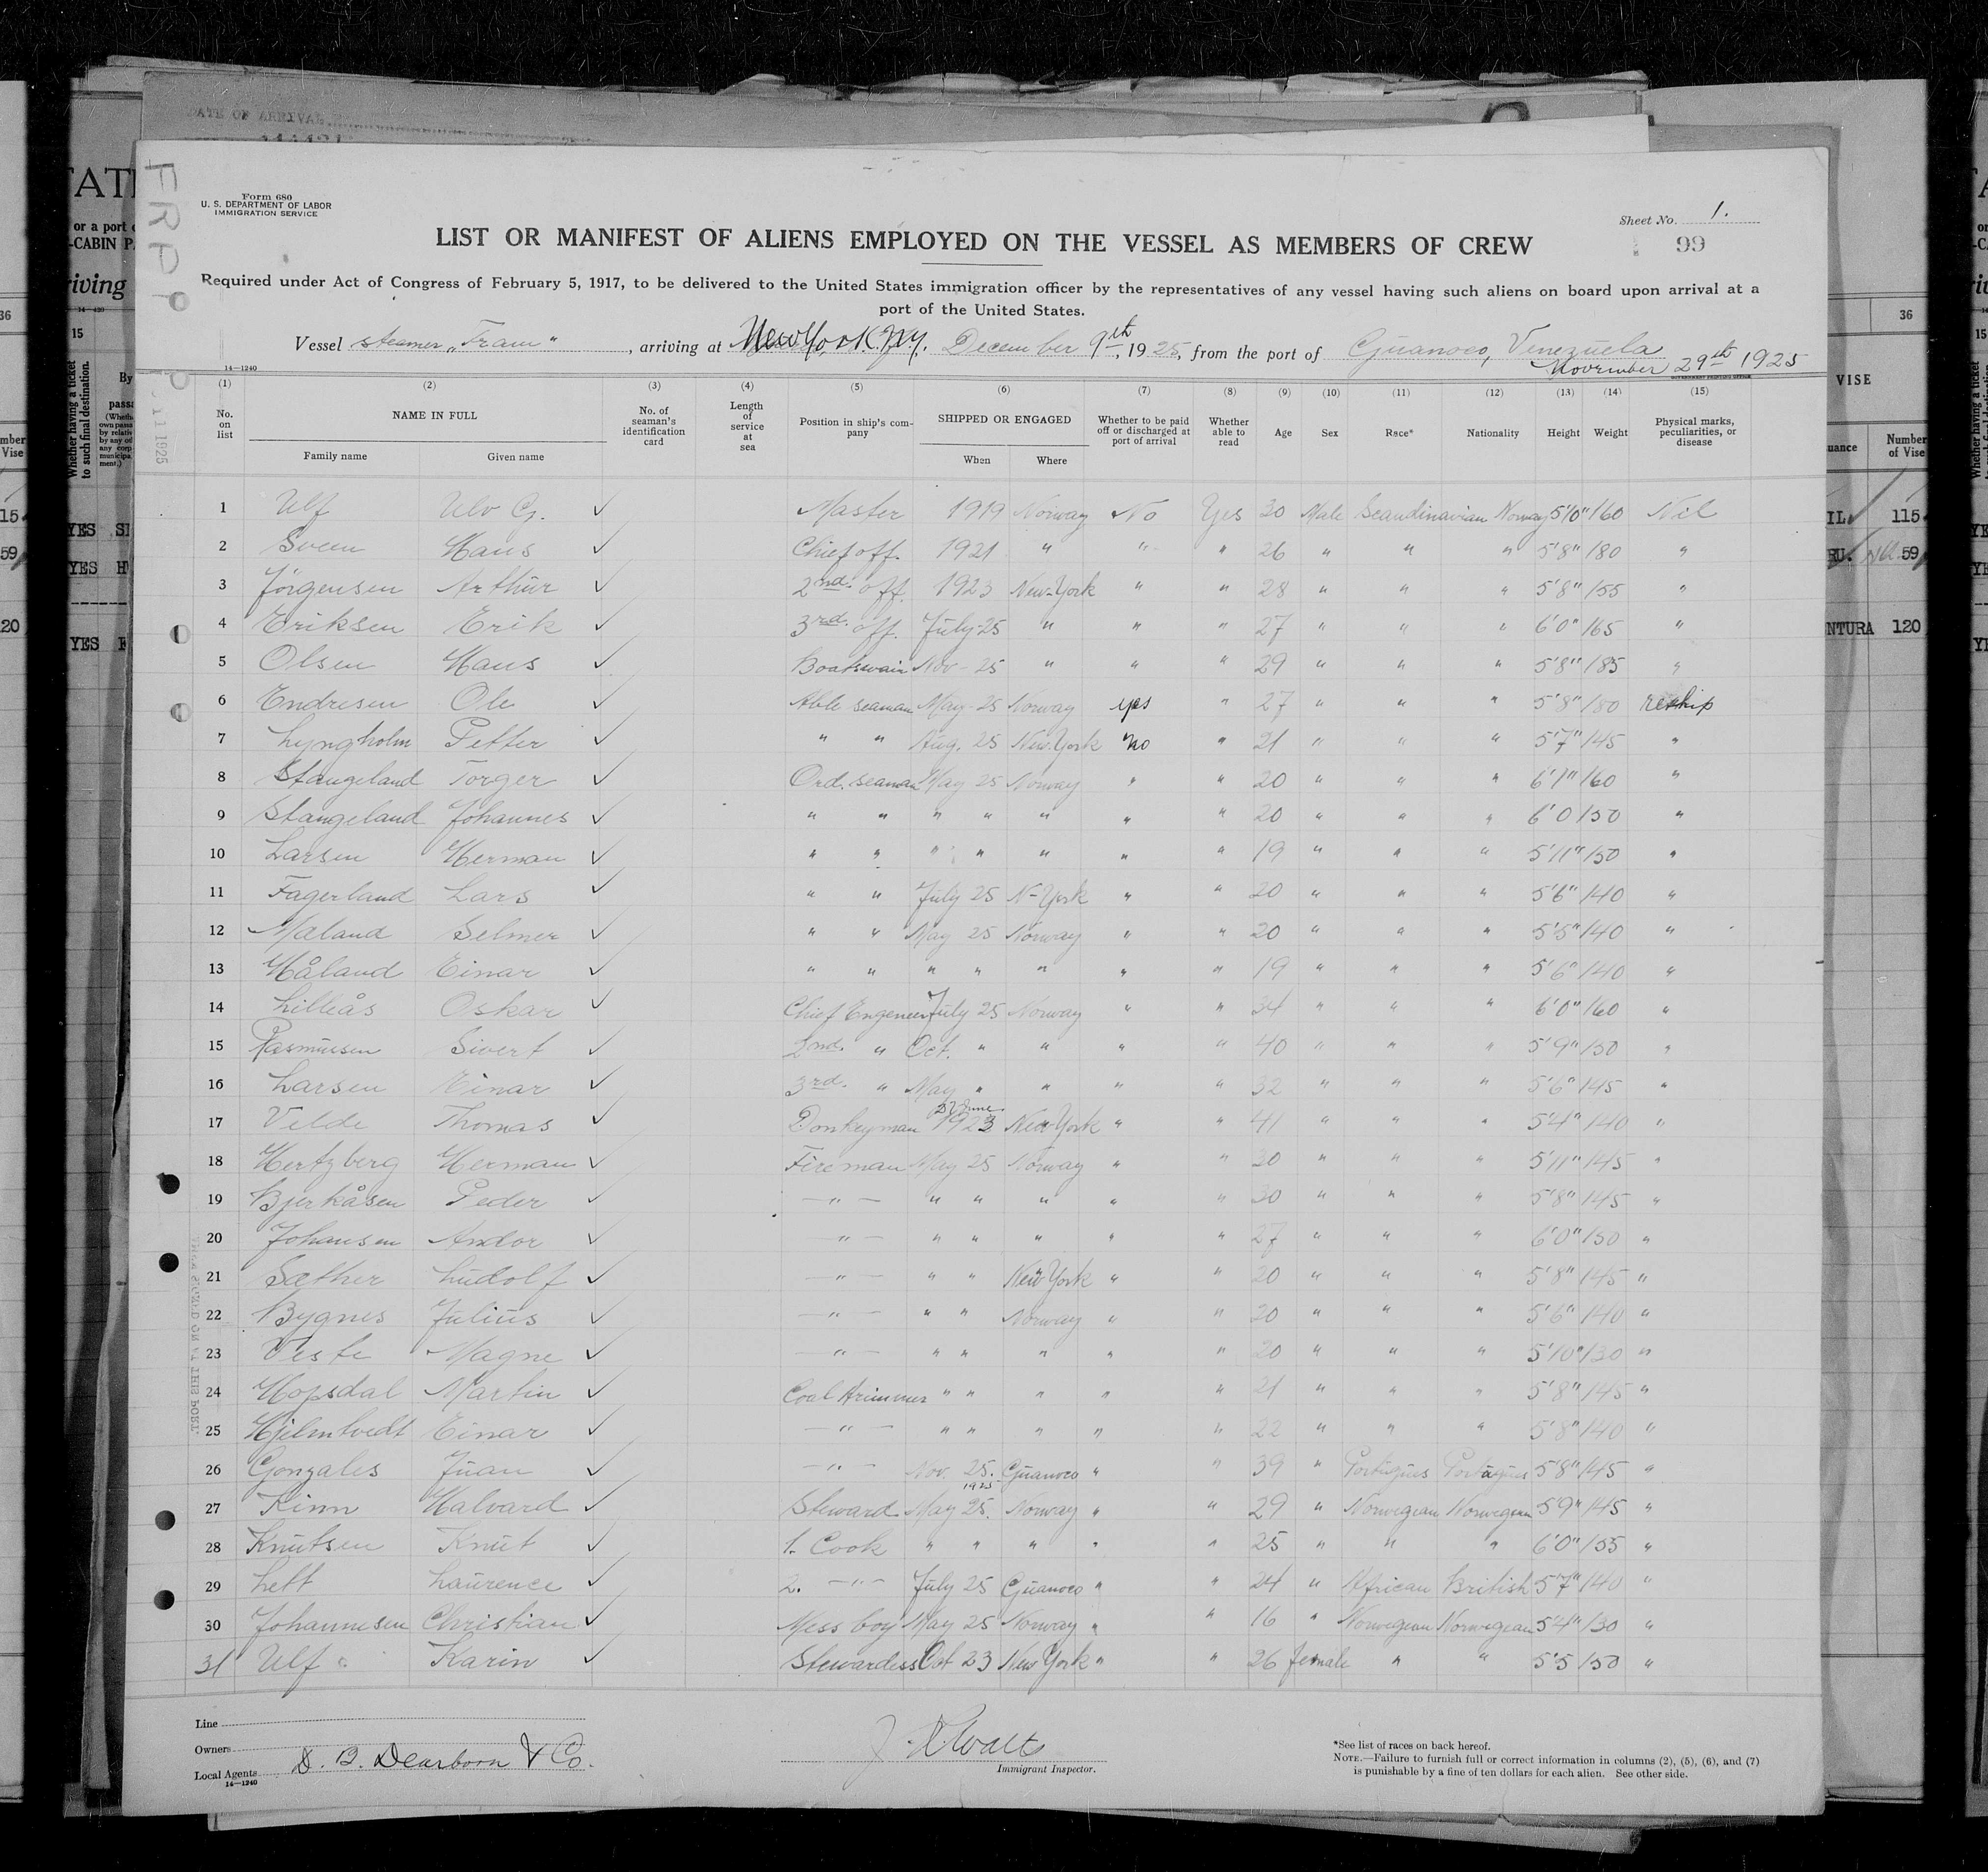 DATE OF ARRIVAL
Form 680
U. S. DEPARTMENT OF LABOR
IMMIGRATION SERVICE
Sheet No. 1.
99
LIST OR MANIFEST OF ALIENS EMPLOYED ON THE VESSEL AS MEMBERS OF CREW
Required under Act of Congress of February 5, 1917, to be delivered to the United States immigration officer by the representatives of any vessel having such aliens on board upon arrival at a
port of the United States.
Vessel steamer "Fram", arriving at New York. N.Y. December 9th, 1925, from the port of Guanoco, Venezuela
November 29th 1925
14—1240
(1) (2) (3) (4) (5) (6) (7) (8) (9) (10) (11) (12) (13) (14) (15)
No. on list NAME IN FULL Family name Given name No. of seaman's identification card Length of service at sea Position in ship's company SHIPPED OR ENGAGED When Where Whether to be paid off or discharged at port of arrival Whether able to read Age Sex Race* Nationality Height Weight Physical marks, peculiarities, or disease
1 Ulf Ulv G. ✓ Master 1919 Norway No Yes 30 Male Scandinavian Norway 5'10" 160 Nil
2 Sveen Hans ✓ Chief off. 1921 " " " 26 " " " 5'8" 180 "
3 Jörgensen Arthur ✓ 2nd. off. 1923 New-York " " 28 " " " 5'8" 155 "
4 Eriksen Erik ✓ 3rd. off. July-25 " " " 27 " " " 6'0" 165 "
5 Olsen Hans ✓ Boatswain Nov-25 " " " 29 " " " 5'8" 185 "
6 Endresen Ole ✓ Able seaman May-25 Norway yes " 27 " " " 5'8" 180 reship
7 Lyngholm Petter ✓ " " Aug. 25 New-York no " 21 " " " 5'7" 145 "
8 Stangeland Torger ✓ Ord. seaman May 25 Norway " " 20 " " " 6'1" 160 "
9 Stangeland Johannes ✓ " " " " " " " 20 " " " 6'0 150 "
10 Larsen Herman ✓ " " " " " " " 19 " " " 5'11" 150 "
11 Fagerland Lars ✓ " " July 25 N-York " " 20 " " " 5'6" 140 "
12 Mæland Selmer ✓ " " May 25 Norway " " 20 " " " 5'5" 140 "
13 Håland Einar ✓ " " " " " " " 19 " " " 5'6" 140 "
14 Lilleås Oskar ✓ Chief Engeneer July 25 Norway " " 34 " " " 6'0" 160 "
15 Rasmussen Sivert ✓ 2nd. " Oct. " " " " 40 " " " 5'9" 150 "
16 Larsen Einar ✓ 3rd. " May " " " " 32 " " " 5'6" 145 "
17 Velde Thomas ✓ Donkeyman 27 June 1923 New York " " 41 " " " 5'4" 140 "
18 Hertzberg Herman ✓ Fireman May 25 Norway " " 30 " " " 5'11" 145 "
19 Bjerkåsen Peder ✓ — " — " " " " " 30 " " " 5'8" 145 "
20 Johansen Andor ✓ — " — " " " " " 27 " " " 6'0" 150 "
21 Sæther Ludolf ✓ — " — " " New York " " 20 " " " 5'8" 145 "
22 Bygnes Julius ✓ — " — " " Norway " " 20 " " " 5'6" 140 "
23 Veste Magne ✓ — " — " " " " " 20 " " " 5'10" 130 "
24 Hopsdal Martin ✓ Coal trimmer " " " " " 21 " " " 5'8" 145 "
25 Hjelmtvedt Einar ✓ — " — " " " " " 22 " " " 5'8" 140 "
26 Gonzales Juan ✓ — " — Nov. 25. Guanoco " " 39 " Portugues Portugues 5'8" 145 "
27 Kinn Halvard ✓ Steward May 25. 1925 Norway " " 29 " Norwegian Norwegian 5'9" 145 "
28 Knutsen Knut ✓ 1. Cook " " " " " 25 " " " 6'0" 155 "
29 Lett Laurence ✓ 2. — " — July 25 Guanoco " " 24 " African British 5'7" 140 "
30 Johannesen Christian ✓ Mess boy May 25 Norway " " 16 " Norwegian Norwegian 5'4" 130 "
31 Ulf Karin ✓ Stewardess Oct 23 New York " " 26 female " " 5'5 150 "
Line
Owners
Local Agents D. B. Dearborn & Co.
14—1240
Immigrant Inspector.
*See list of races on back hereof.
NOTE.—Failure to furnish full or correct information in columns (2), (5), (6), and (7)
is punishable by a fine of ten dollars for each alien. See other side.